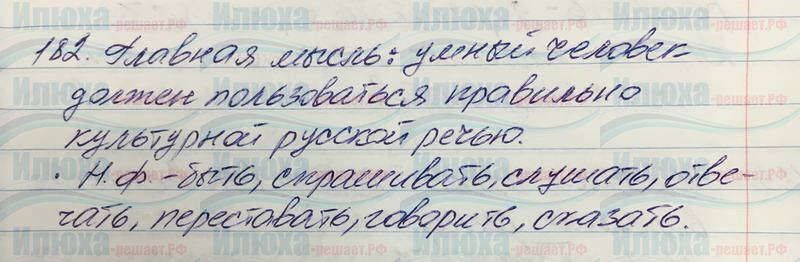 182. Главная мысль: умный человек
должен пользоваться правильно
культурной русской речью.
· Н.ф. - быть, спрашивать, слушать, отве-
чать, переставать, говорить, сказать.
Илюха-решает.РФ